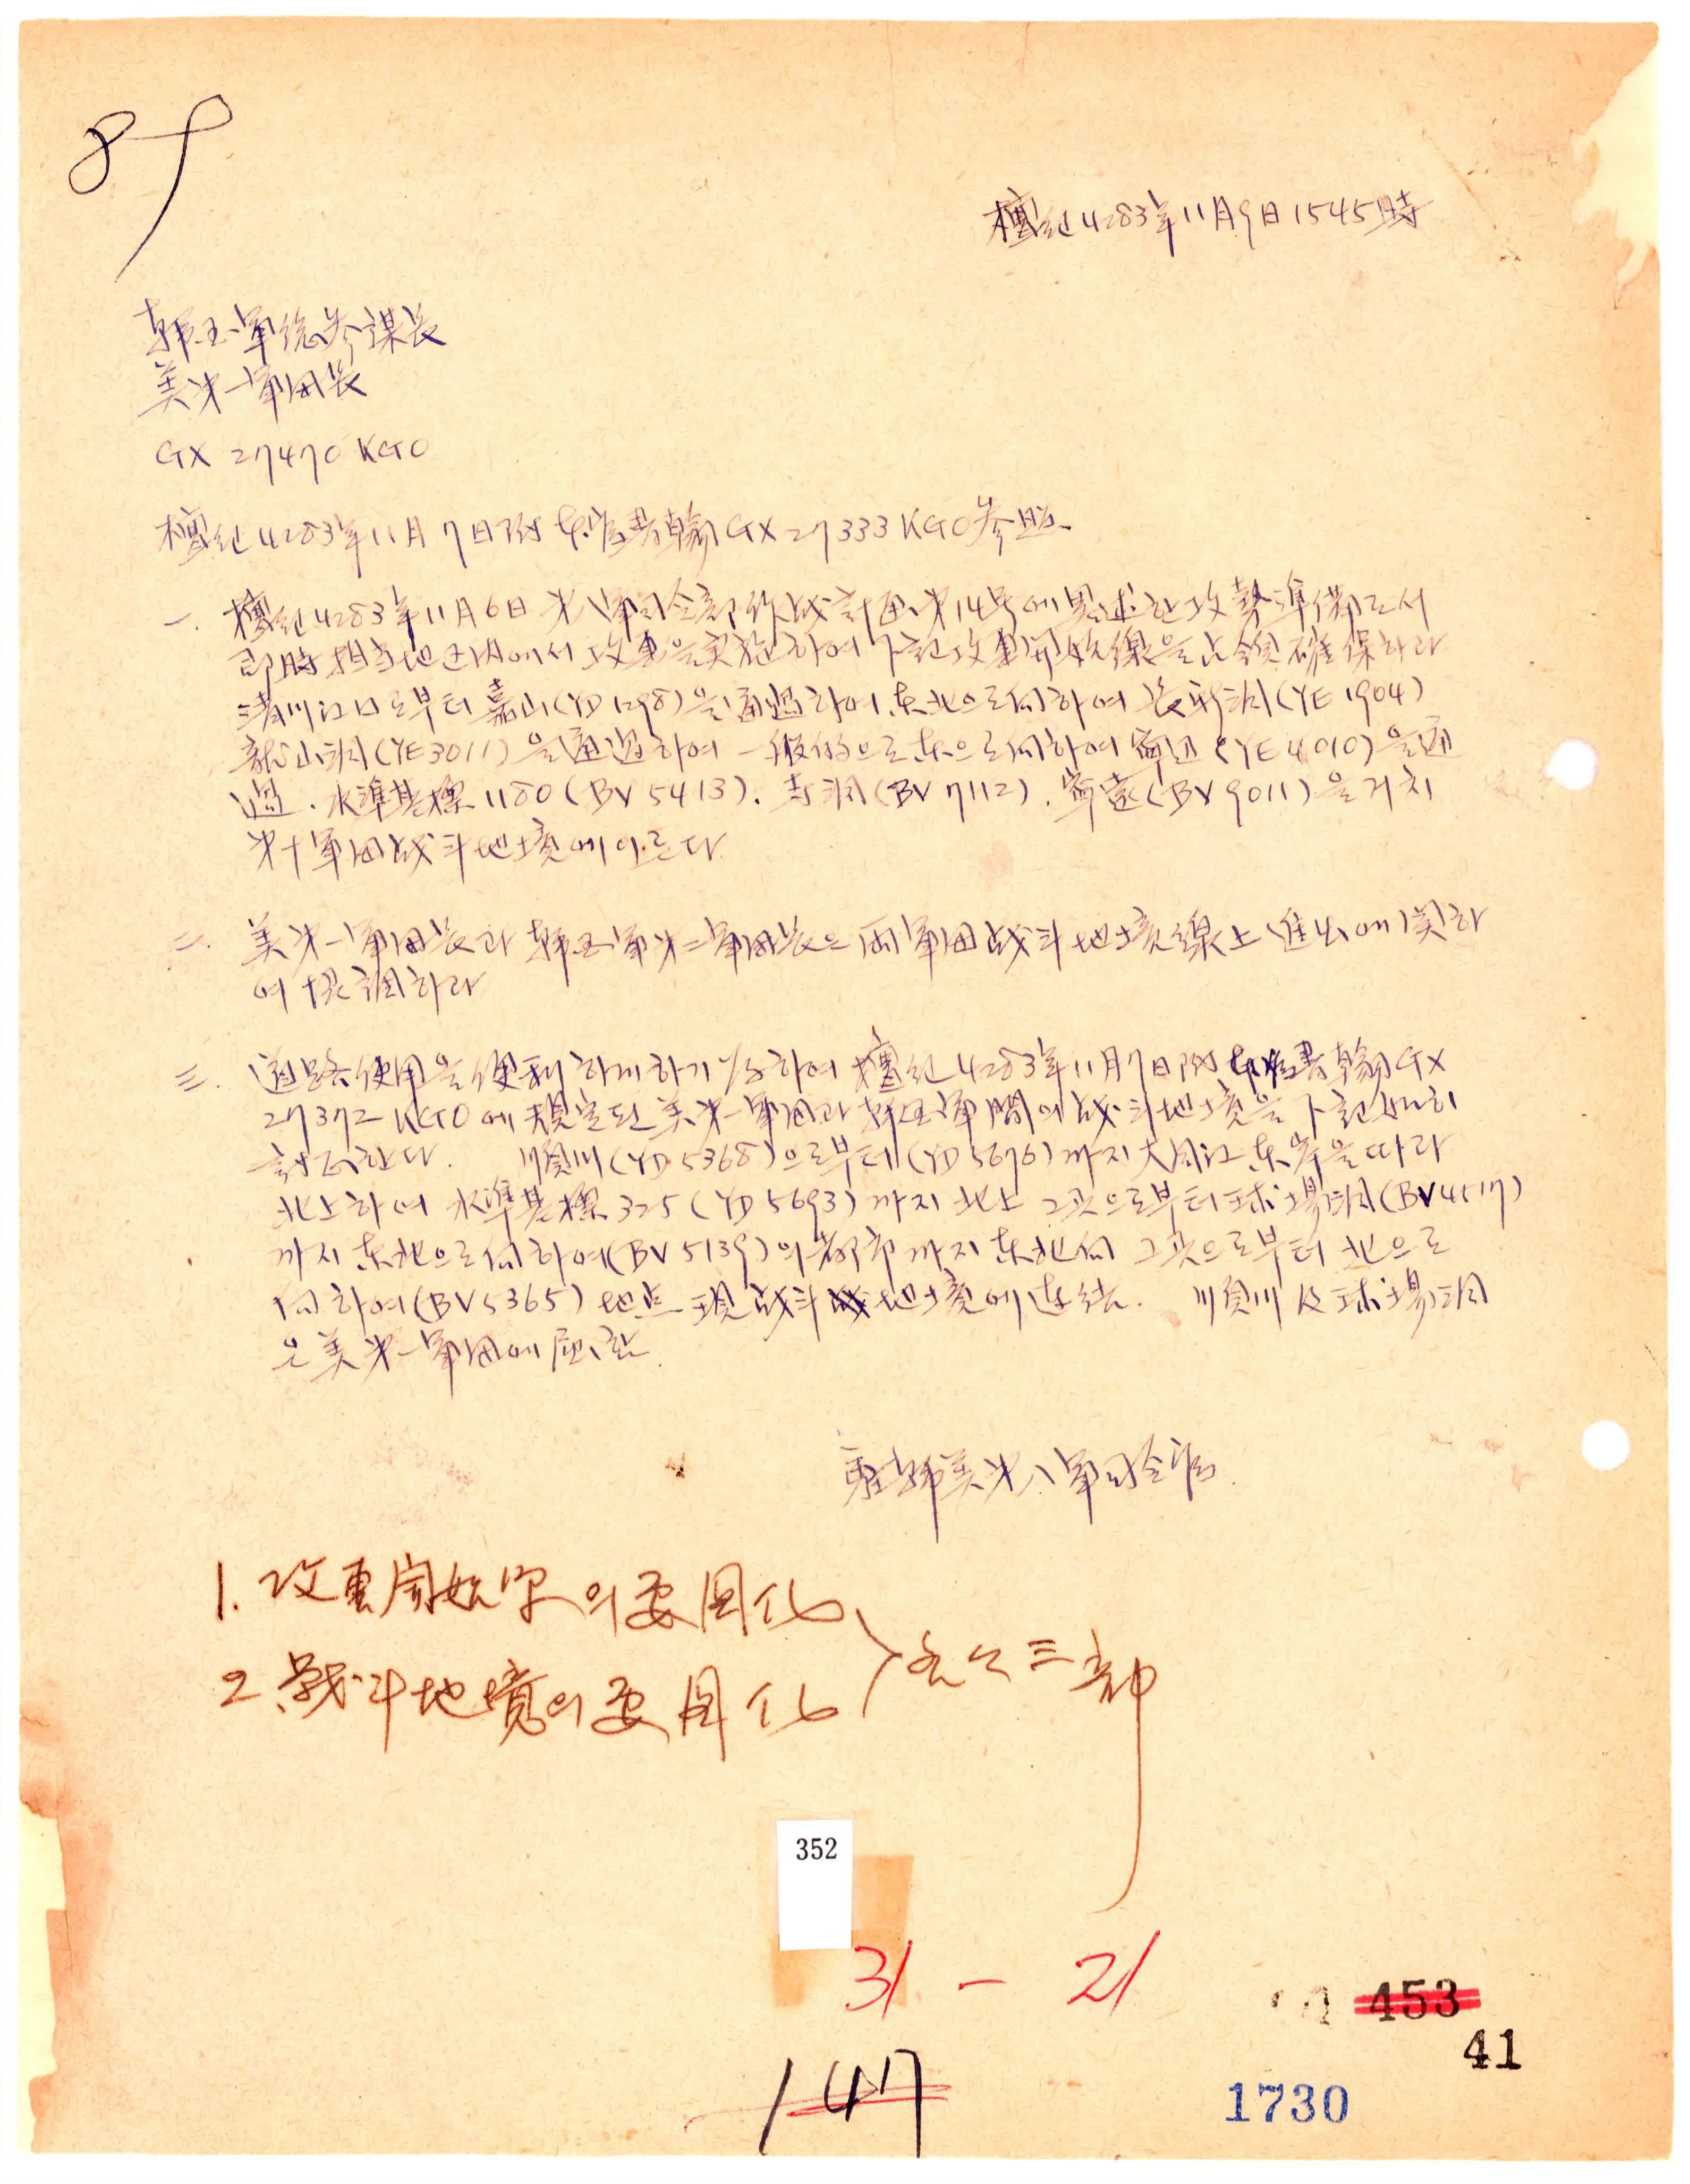 89
檀紀4283年11月9日1545時
韓国軍總参謀長
美第一軍団長
GX 27470 KGO
檀紀4283年11月7日附 本官書翰 GX 27333 KGO 参照
一. 檀紀4283年11月6日 第八軍司令部作战計画 第14号에 略述한 攻勢準備로서
即時担当地区内에서 攻擊을 実施하여 下記攻擊開始線을 占領確保하라
清川江口로부터 嘉山(YD 1298)을 通過하여 东北으로 向하여 長新洞(YE 1904)
龍山洞(YE 3011)을 通過하여 一般的으로 东으로 向하여 寧辺(YE 4010)을 通
過. 水準基標 1180(BV 5413). 寺洞(BV 7112). 寧遠(BV 9011)을 거치
第十軍団战斗地境에 이른다
二. 美第一軍団長과 韓国軍第二軍団長은 両軍団战斗地境線上進出에 関하
여 协調하라
三. 道路使用을 便利하게하기 위하여 檀紀4283年11月7日附 本官書翰 GX
27372 KGO에 規定된 美第一軍団과 韓国軍間의 战斗地境을 下記如히
訂正한다. 順川(YD 5368)으로부터 (YD 5676)까지 大同江东岸을 따라
北上하여 水準基標 325(YD 5693)까지 北上 그곳으로부터 球場洞(BV 4517)
까지 东北으로 向하여 (BV 5139)의 都市까지 东北向 그곳으로부터 北으로
向하여 (BV 5365) 地点 現战斗地境에 連结. 順川 及 球場洞
은 美第一軍団에 屬함.
駐韓美第八軍司令官.
1. 攻擊開始線의 要図化
2. 戰斗地境의 要図化
各々三部
352
31 - 21
453
41
147
1730